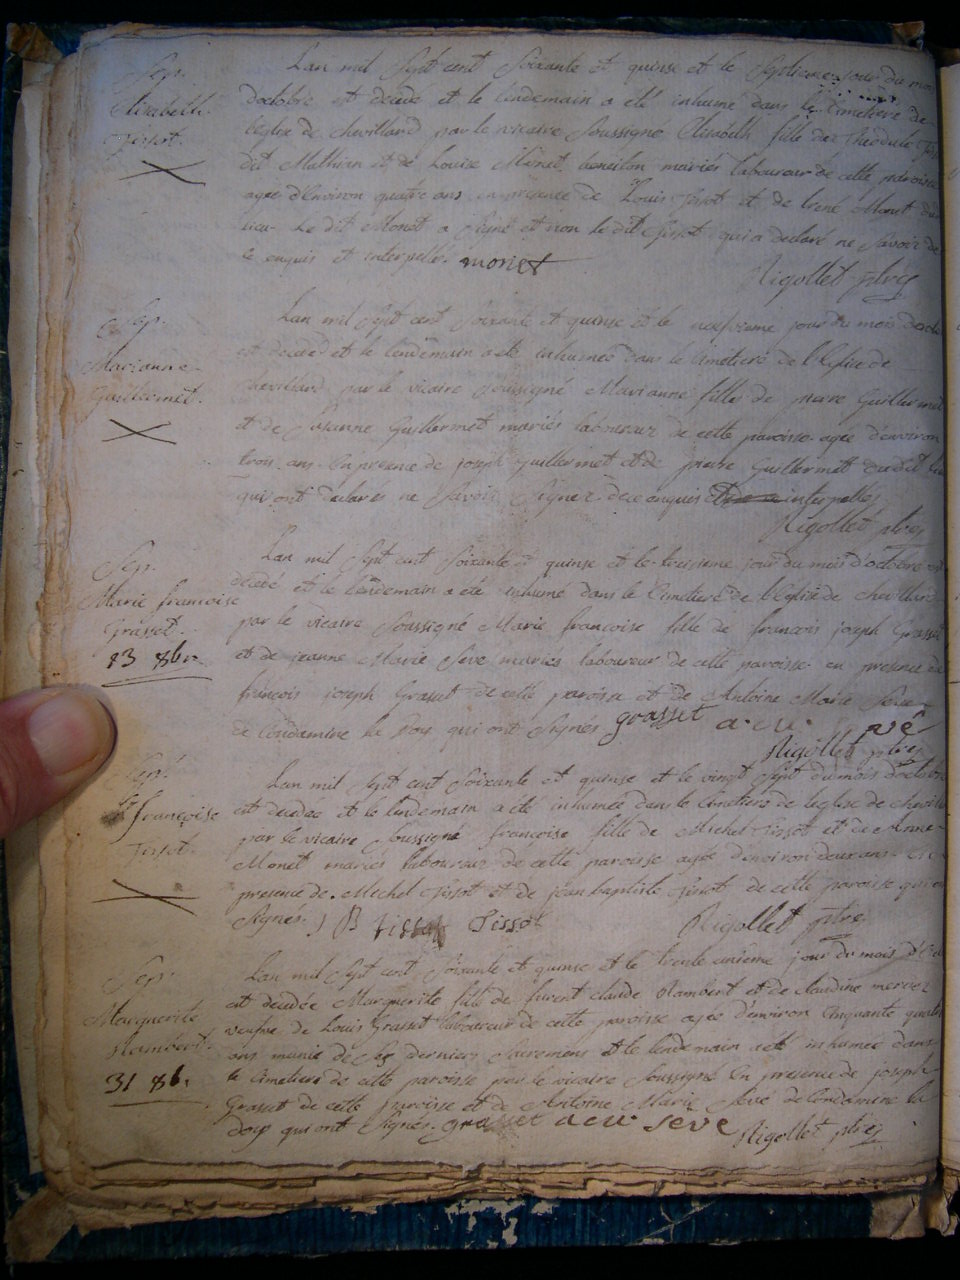 Sep.
Elisabeth
Tissot.
Lan mil Sept cent Soixante et quinse et le Septieme jour du mois
doctobre est decede et le lendemain a été inhumé dans le Cimetiere de
leglise de chevillard par le vicaire Soussigné Elisabeth fille de Theodule
dit Mathieu et de Louise Monet mariés laboureur de cette paroisse
agée d'Environ quatre ans en presence de Louis Tissot et de Monet du
lieu. Le dit Monet a Signé et non le dit Tissot qui a declaré ne Savoir de
ce enquis et interpellé. monet
Rigollet ptre
Sep.
Marianne
Guillermet.
Lan mil Sept cent Soixante et quinse et le neufvieme jour du mois
est decedé et le lendemain a été inhumée dans le Cimetiere de l'Eglise de
Chevillard par le vicaire Soussigné Marianne fille de pierre Guillermet
et de Susanne Guillermet mariés laboureur de cette paroisse agée d'environ
trois ans En presence de joseph guillermet et de pierre Guillermet dudit
qui ont déclarés ne Savoir Signer de ce enquis interpellés
Rigollet ptre
Sep.
Marie francoise
Grasset.
13 8b.
Lan mil Sept cent Soixante et quinse et le treisieme jour du mois d'octobre est
decedé et le lendemain a été inhumé dans le Cimetiere de l'Eglise de chevillard
par le vicaire Soussigné Marie francoise fille de francois joseph Grasset
et de jeanne Marie Seve mariés laboureur de cette paroisse en presence de
francois joseph Grasset de cette paroisse et de Antoine Marie Seve
de Condamine la Doy qui ont Signés grasset
Rigollet ptre
Sep.
francoise
Tissot.
Lan mil Sept cent Soixante et quinse et le vingt Sept du mois d'octobre
est decedée et le lendemain a été inhumée dans le Cimetiere de leglise de
par le vicaire Soussigné francoise fille de Michel Tissot et de Anne
Monet mariés laboureur de cette paroisse agée d'environ deux ans en
presence de Michel Tissot et de jean baptiste Tissot de cette paroisse qui
Signés. J B tissot Tissot Rigollet ptre
Sep.
Marguerite
Rambert.
31 8b.
Lan mil Sept cent Soixante et quinse et le trente unieme jour du mois
est decedée Marguerite fille de claude Rambert et de claudine mercier
veufve de Louis Grasset laboureur de cette paroisse agée d'environ Cinquante quatre
ans munie de Ses derniers Sacremens et le lendemain a été inhumée dans
le Cimetiere de cette paroisse par le vicaire Soussigné En presence de joseph
Grasset de cette paroisse et de Antoine Marie Sevé de Condamine la
doy qui ont Signés. grasset seve Rigollet ptre